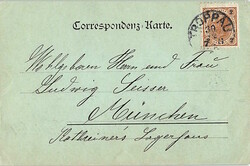 Correspondenz-Karte.
TROPPAU
Wohlgeboren Herrn und Frau
Ludwig Susser
München
Lagerhaus